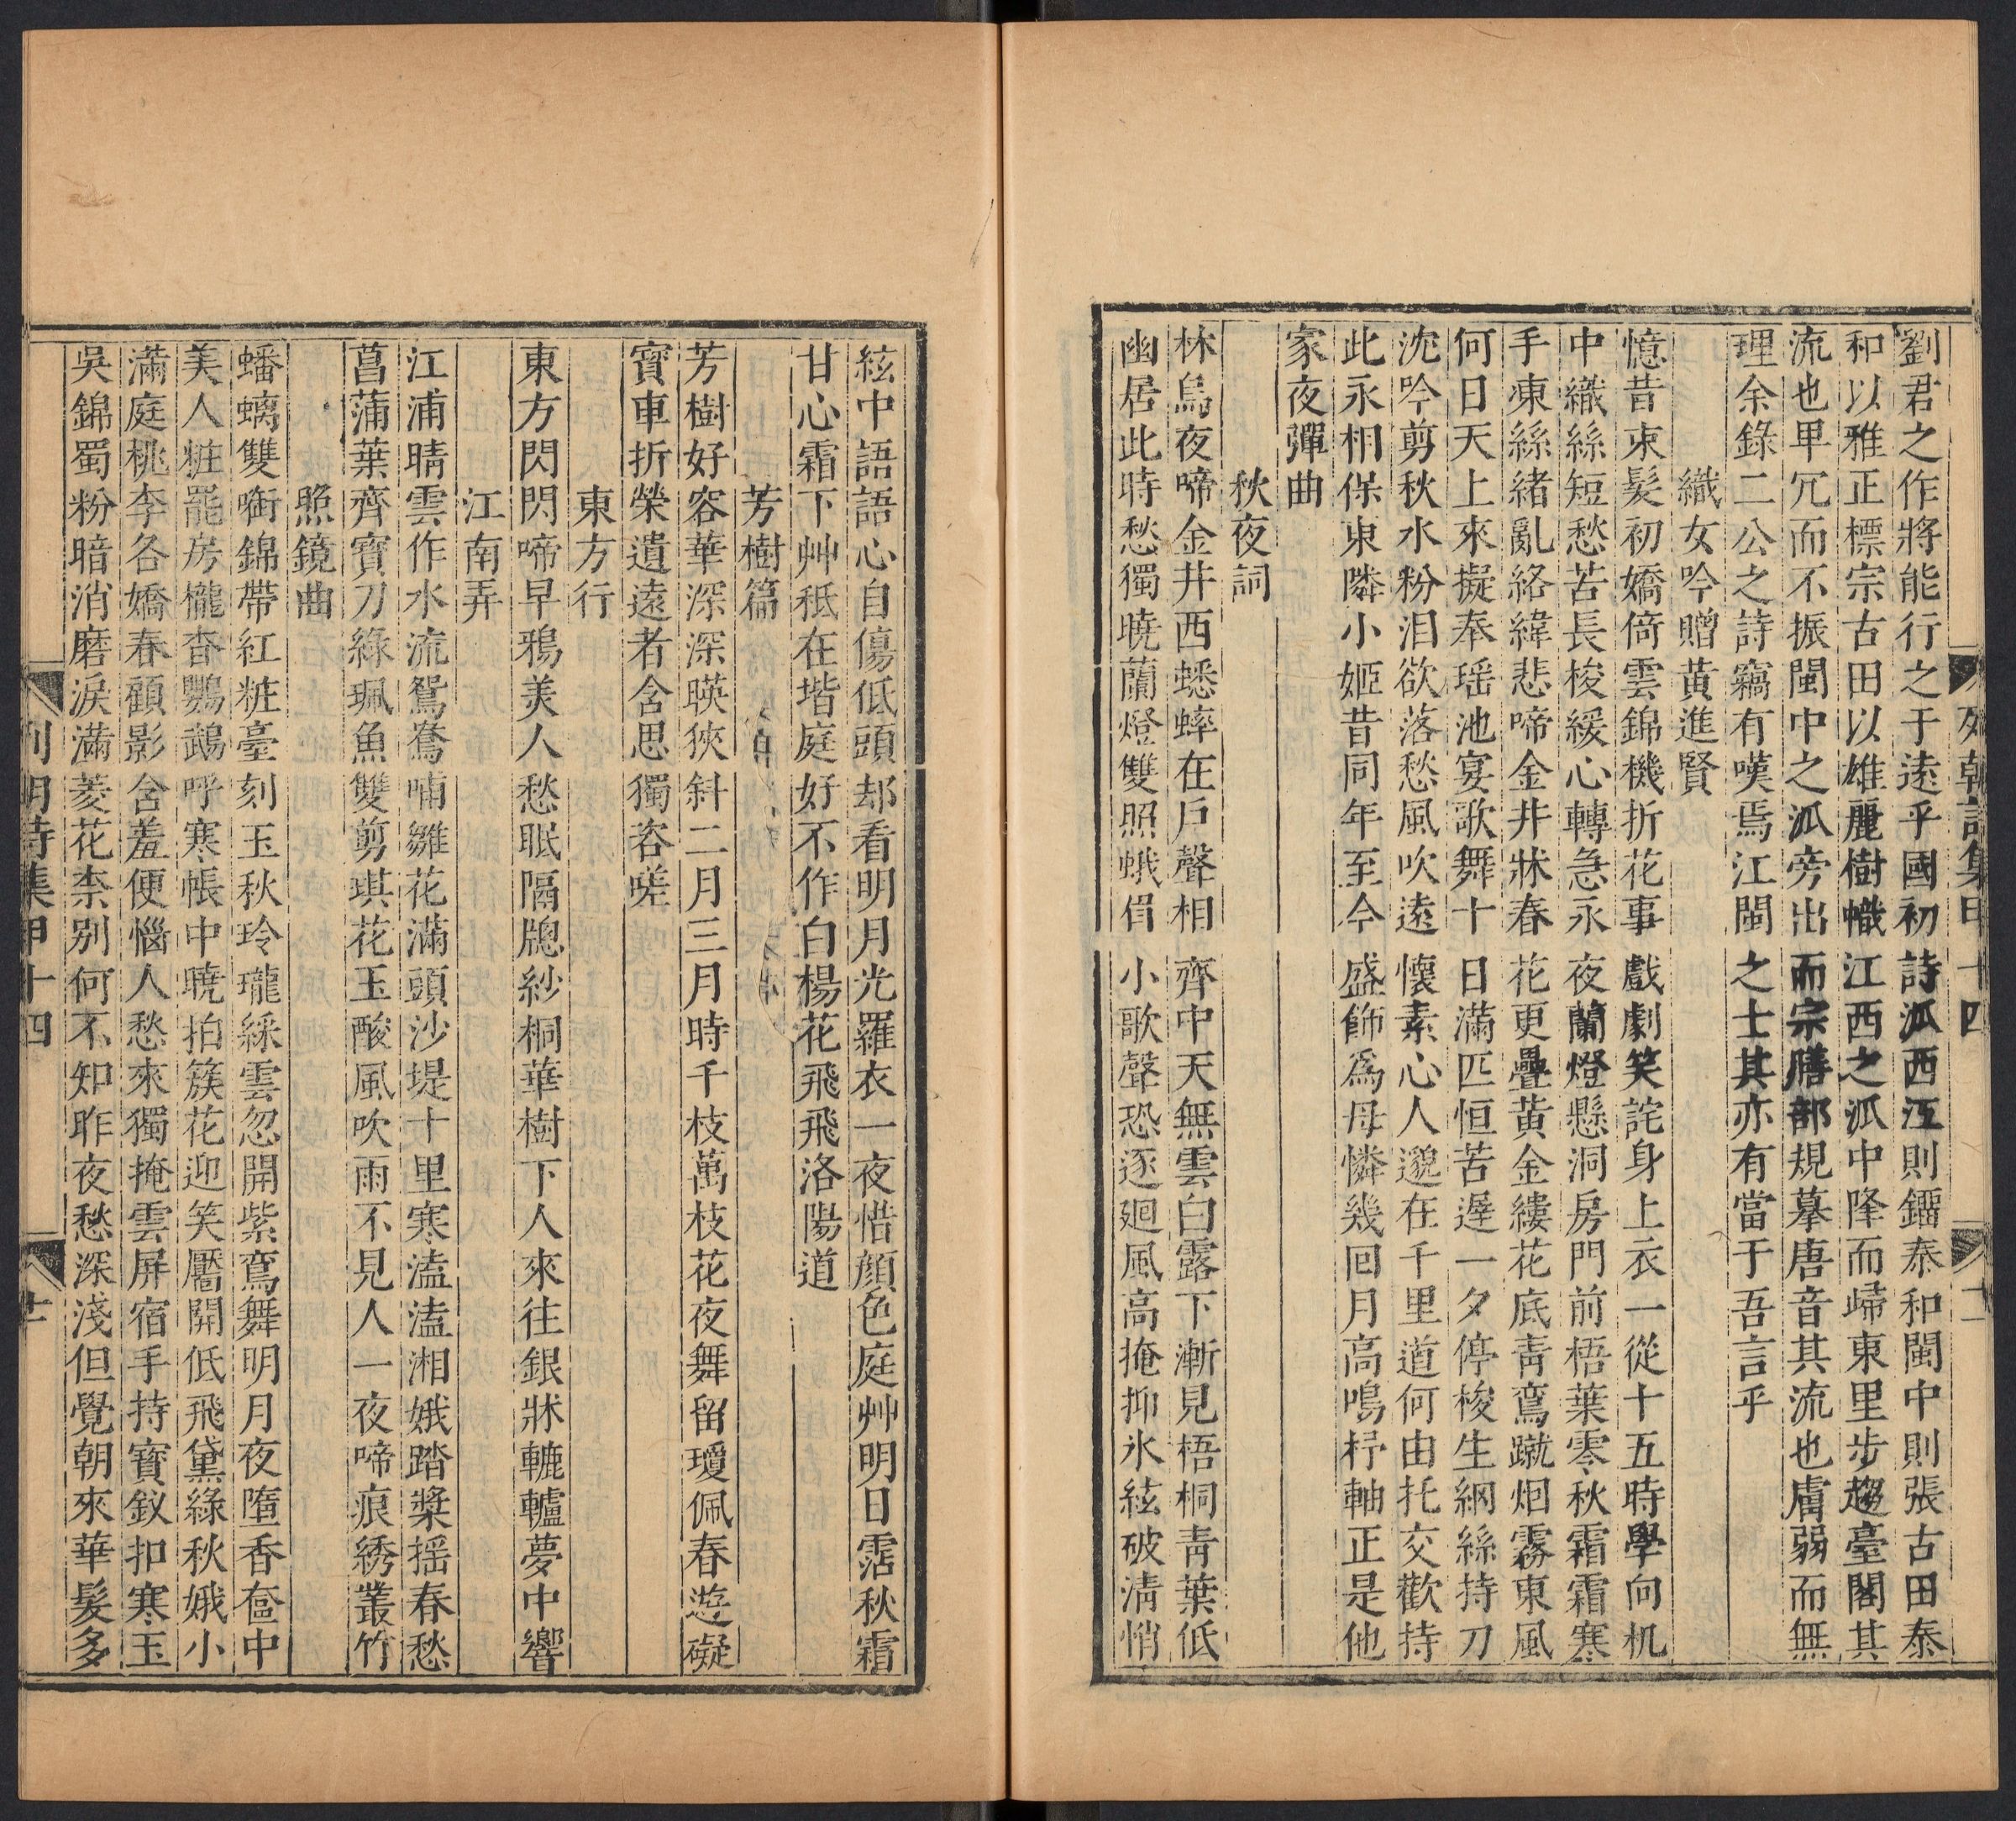 列朝詩集甲十四
劉君之作將能行之于遠乎國初詩派西江則鎦泰和閩中則張古田泰
和以雅正標宗古田以雄麗樹幟江西之派中降而歸東里步趨臺閣其
流也卑冗而不振閩中之派旁出而宗膳部規摹唐音其流也膚弱而無
理余錄二公之詩竊有嘆焉江閩之士其亦有當于吾言乎
織女吟贈黃進賢
憶昔束髮初嬌倚雲錦機折花事戲劇笑詫身上衣一從十五時學向机
中織絲短愁苦長梭緩心轉急永夜蘭燈懸洞房門前梧葉零秋霜霜寒
手凍絲緒亂絡緯悲啼金井牀春花更疊黃金縷花底靑鸞蹴烟霧東風
何日天上來擬奉瑶池宴歌舞十日滿匹恒苦遲一夕停梭生網絲持刀
沈吟剪秋水粉泪欲落愁風吹遠懷素心人邈在千里道何由托交歡持
此永相保東隣小姬昔同年至今盛飾爲母憐幾回月高鳴杼軸正是他
家夜彈曲
秋夜詞
林烏夜啼金井西蟋蟀在戶聲相齊中天無雲白露下漸見梧桐靑葉低
幽居此時愁獨曉蘭燈雙照蛾眉小歌聲恐逐廻風高掩抑氷絃破淸悄
絃中語語心自傷低頭却看明月光羅衣一夜惜顏色庭艸明日霑秋霜
甘心霜下艸秪在堦庭好不作白楊花飛飛洛陽道
芳樹篇
芳樹好容華深深暎狹斜二月三月時千枝萬枝花夜舞留瓊佩春遊礙
寶車折榮遺遠者含思獨咨嗟
東方行
東方閃閃啼早鴉美人愁眠隔牎紗桐華樹下人來往銀牀轆轤夢中響
江南弄
江浦晴雲作水流鴛鴦哺雛花滿頭沙堤十里寒溘溘湘娥踏槳揺春愁
菖蒲葉齊寶刀綠珮魚雙剪琪花玉酸風吹雨不見人一夜啼痕綉叢竹
照鏡曲
蟠螭雙銜錦帶紅粧臺刻玉秋玲瓏綵雲忽開紫鸞舞明月夜墮香奩中
美人粧罷房櫳杳鸚鵡呼寒帳中曉拍簇花迎笑靨開低飛黛綠秋娥小
滿庭桃李各嬌春顧影含羞便惱人愁來獨掩雲屏宿手持寶釵扣寒玉
吳錦蜀粉暗消磨淚滿菱花柰别何不知昨夜愁深淺但覺朝來華髮多
列朝詩集甲十四